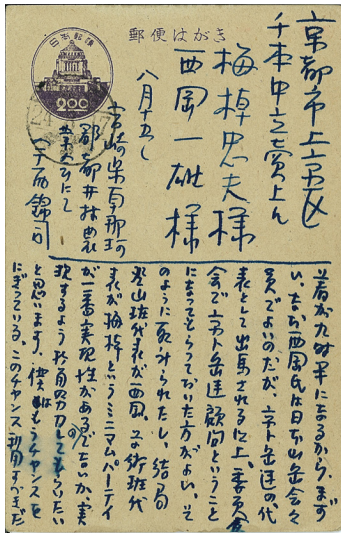 郵便はがき
日本郵便
200
24
京都市上京区
千本中立売上ル
梅棹忠夫様
西岡一雄様
八月十五日
宮崎県
都井村
にて
今西錦司
着が九時半になるから、まず
い、なお西岡氏は日本山岳会々
員でよいのだが、京ト岳連の代
表として出馬される以上、委員会
会で京ト岳連顧問ということ
になってもらっておいた方がよい。そ
のように取りはからわれたし、結局
登山班代表が西岡。学術班代
表が梅棹というミニマムパーティ
が一番実現性があるのでないか、実
現するよう折角努力してもらいたい
と思います。僕はもうチャンスを
にぎっている。このチャンス利用すべきだ